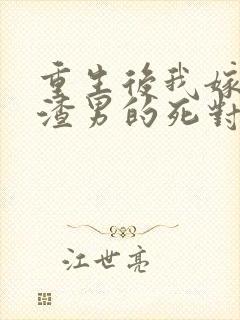 重生後我嫁
渣男的死對
江世亮